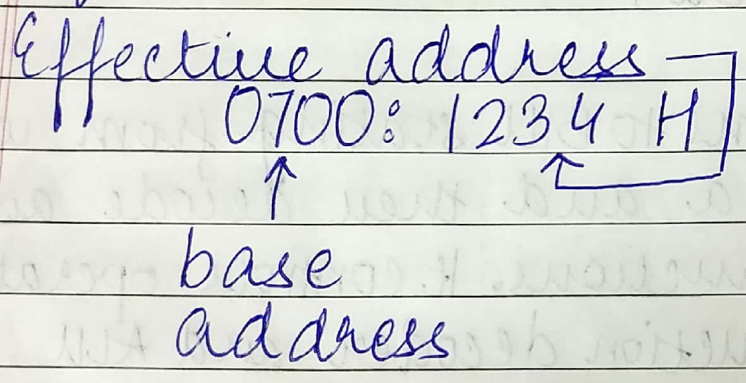 Effective address
0700: 1234 H
base
address